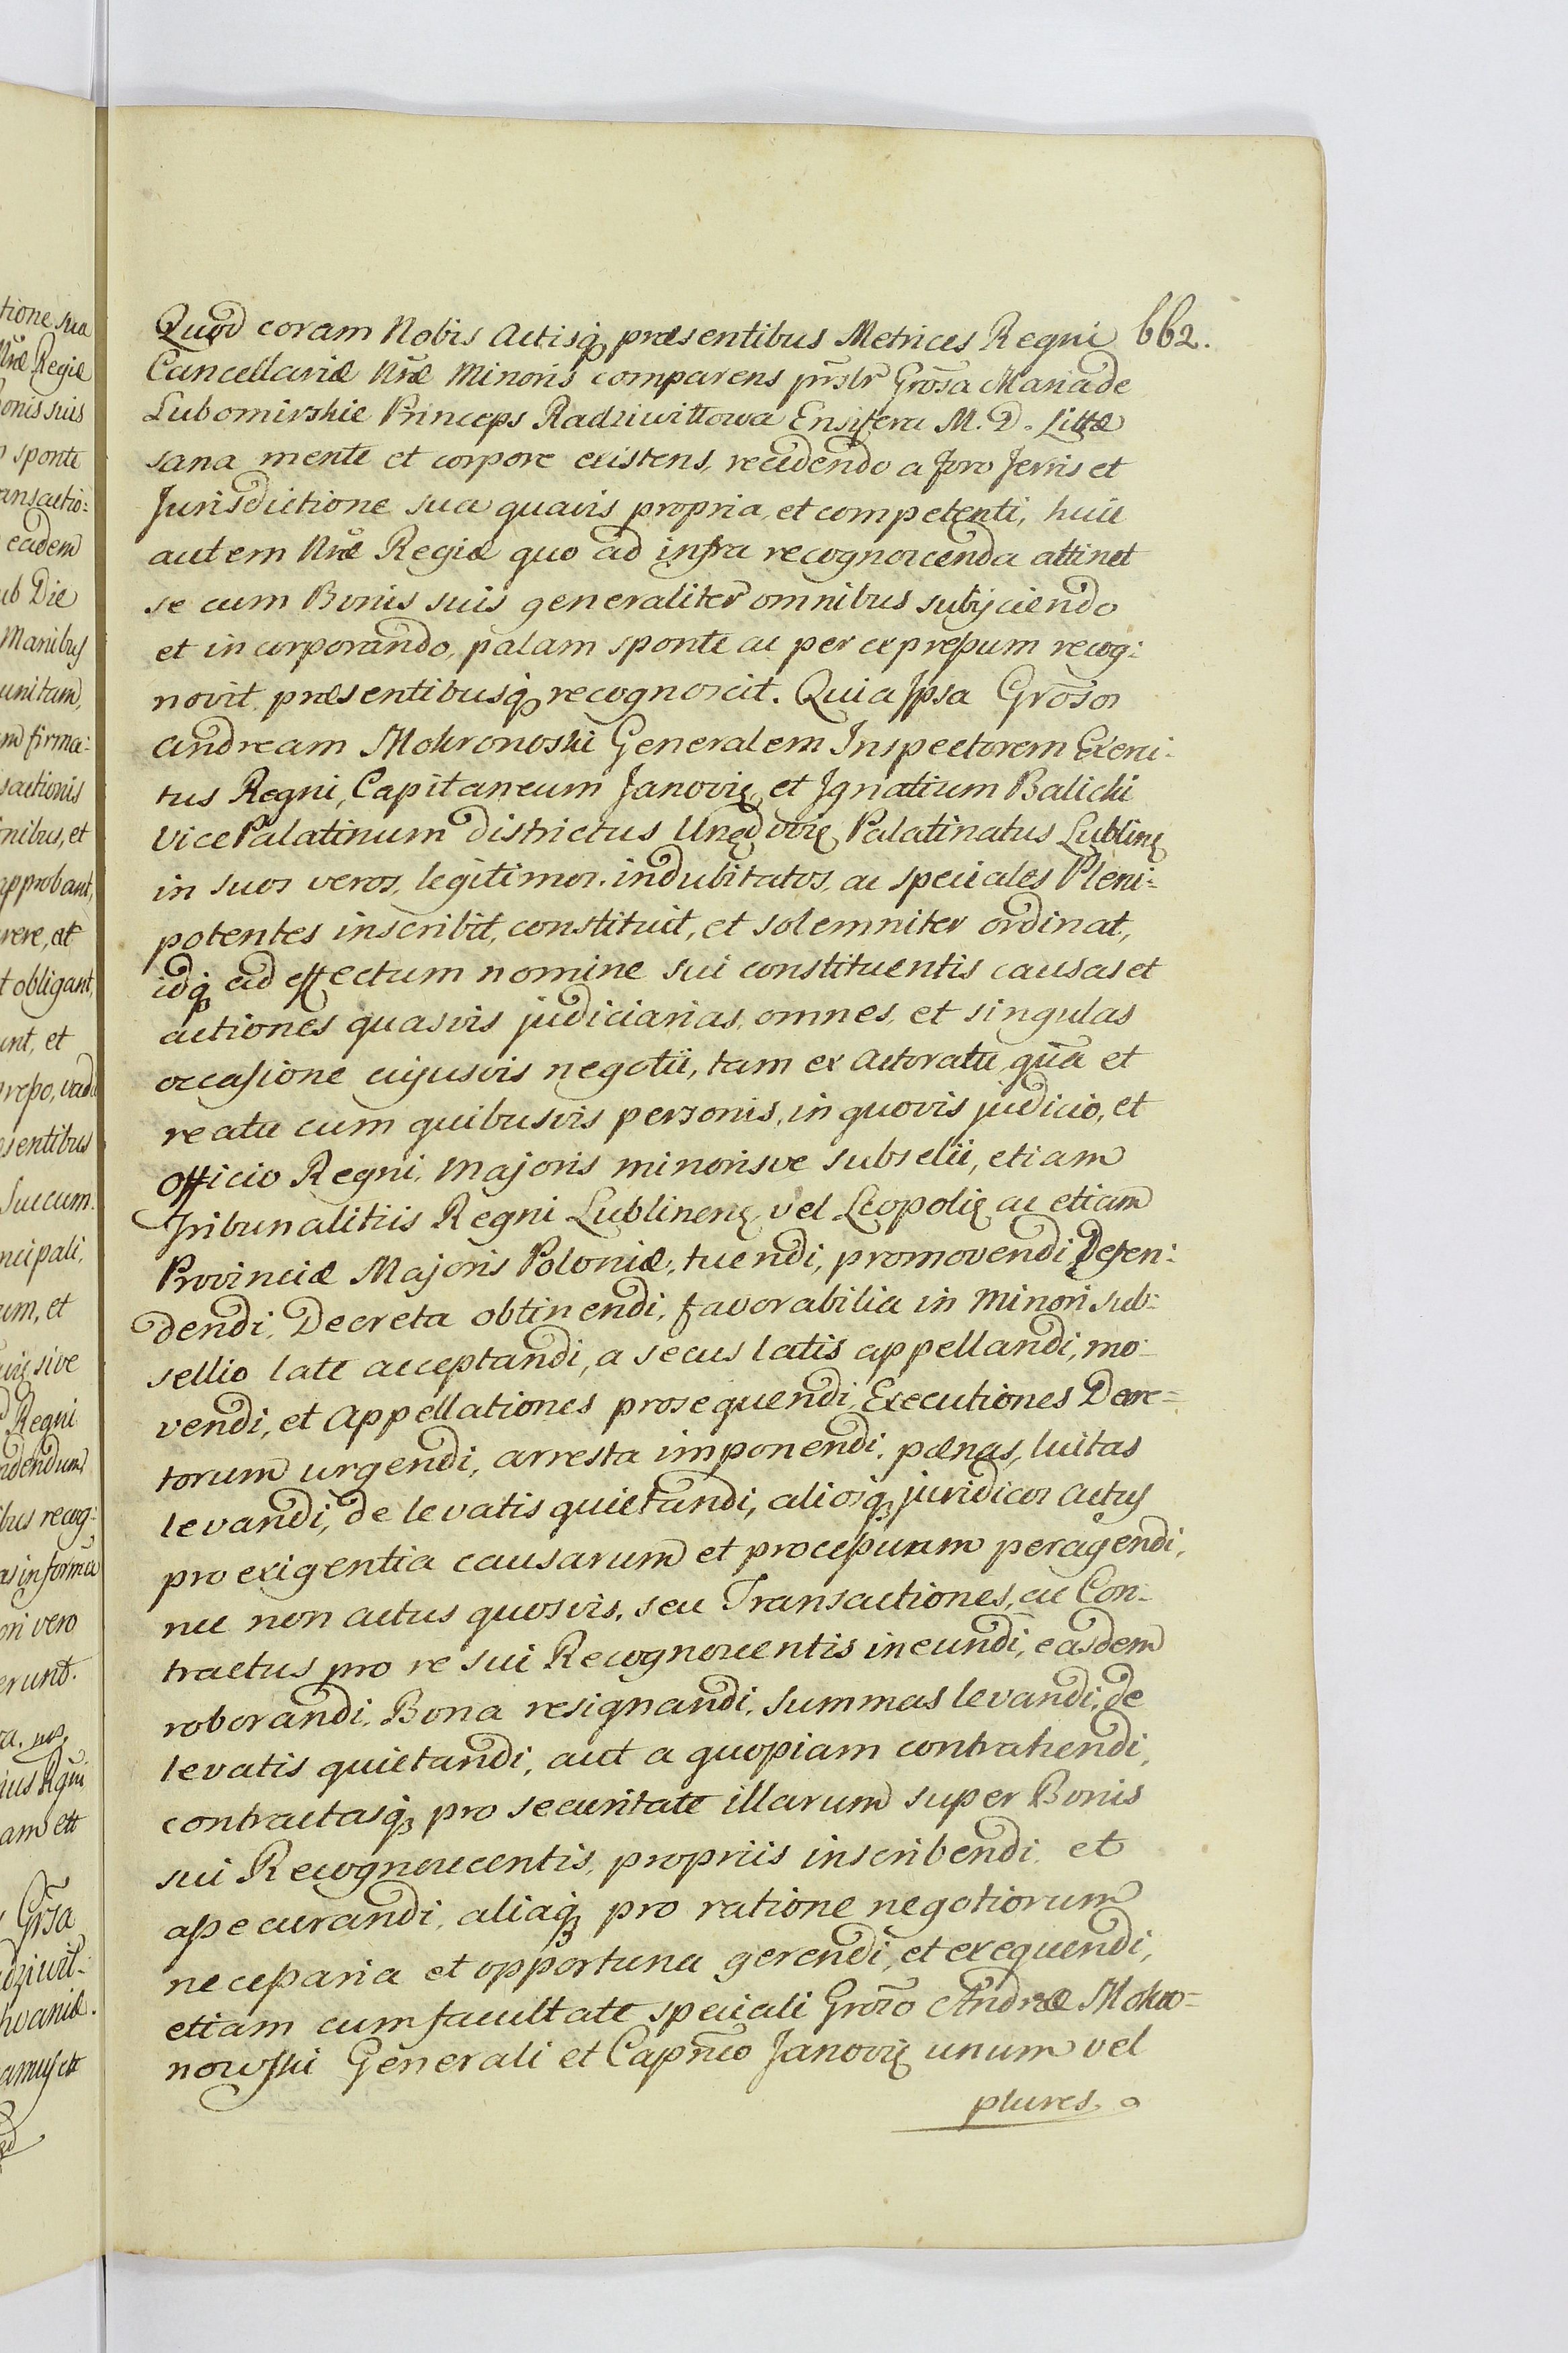 662.
Quod coram Nobis Actisq præsentibus Metrices Regni
Cancellariæ Nræ Minoris comparens prslr Grosa Maria de
Lubomirskie Princeps Radziwiłłowa Ensifera M. D. Littæ
sana mente et corpore existens, recedendo a foro Terris et
Jurisdictione sua quavis propria, et competenti, huic
autem Nræ Regiæ quo ad infra recognoscenda attinet
se cum Bonis suis generaliter omnibus subijciendo
et incorporando, palam sponte ac per expressum recog:
novit præsentibusq recognoscit. Quia Ipsa Grosos
Andream Mokronoski Generalem Inspectorem Exerci:
tus Regni, Capitaneum Janovię, et Ignatium Balicki
Vice Palatinum districtus Palatinatus Lublinę
in suos veros, legitimos, indubitatos, ac speciales Pleni=
potentes inscribit, constituit, et solemniter ordinat,
idq ad effectum nomine sui constituentis causas et
actiones quasvis judiciarias, omnes, et singulas
occasione cujusvis negotii, tam ex Actoratu qua et
reatu cum quibusvis personis, in quovis judicio, et
officio Regni, Majoris minorisve subselii, etiam
Tribunalitiis Regni Lublinenę vel Leopolię ac etiam
Provinciæ Majoris Poloniæ, tuendi, promovendi Defen:
dendi, Decreta obtinendi, favorabilia in Minori sub:
sellio late acceptandi, a secus latis appellandi, mo:
vendi, et Appellationes prosequendi, Executiones Decre=
torum urgendi, arresta imponendi, pænas, luitas
levandi, de levatis quietandi, aliosq juridicos Actus
pro exigentia causarum et processuum peragendi,
nec non actus quosvis, seu Transactiones, ac Con:
tractus pro re sui Recognoscentis ineundi, easdem
roborandi, Bona resignandi, Summas levandi, de
levatis quietandi, aut a quopiam contrahendi,
contractasq pro securitate illarum super Bonis
sui Recognoscentis, propriis inscribendi et
assecurandi, aliaq pro ratione negotiorum
necessaria et opportuna gerendi, et exequendi,
etiam cum facultate speciali Groso Andreæ Mokro=
nowski Generali et Capneo Janovię unum vel
plures